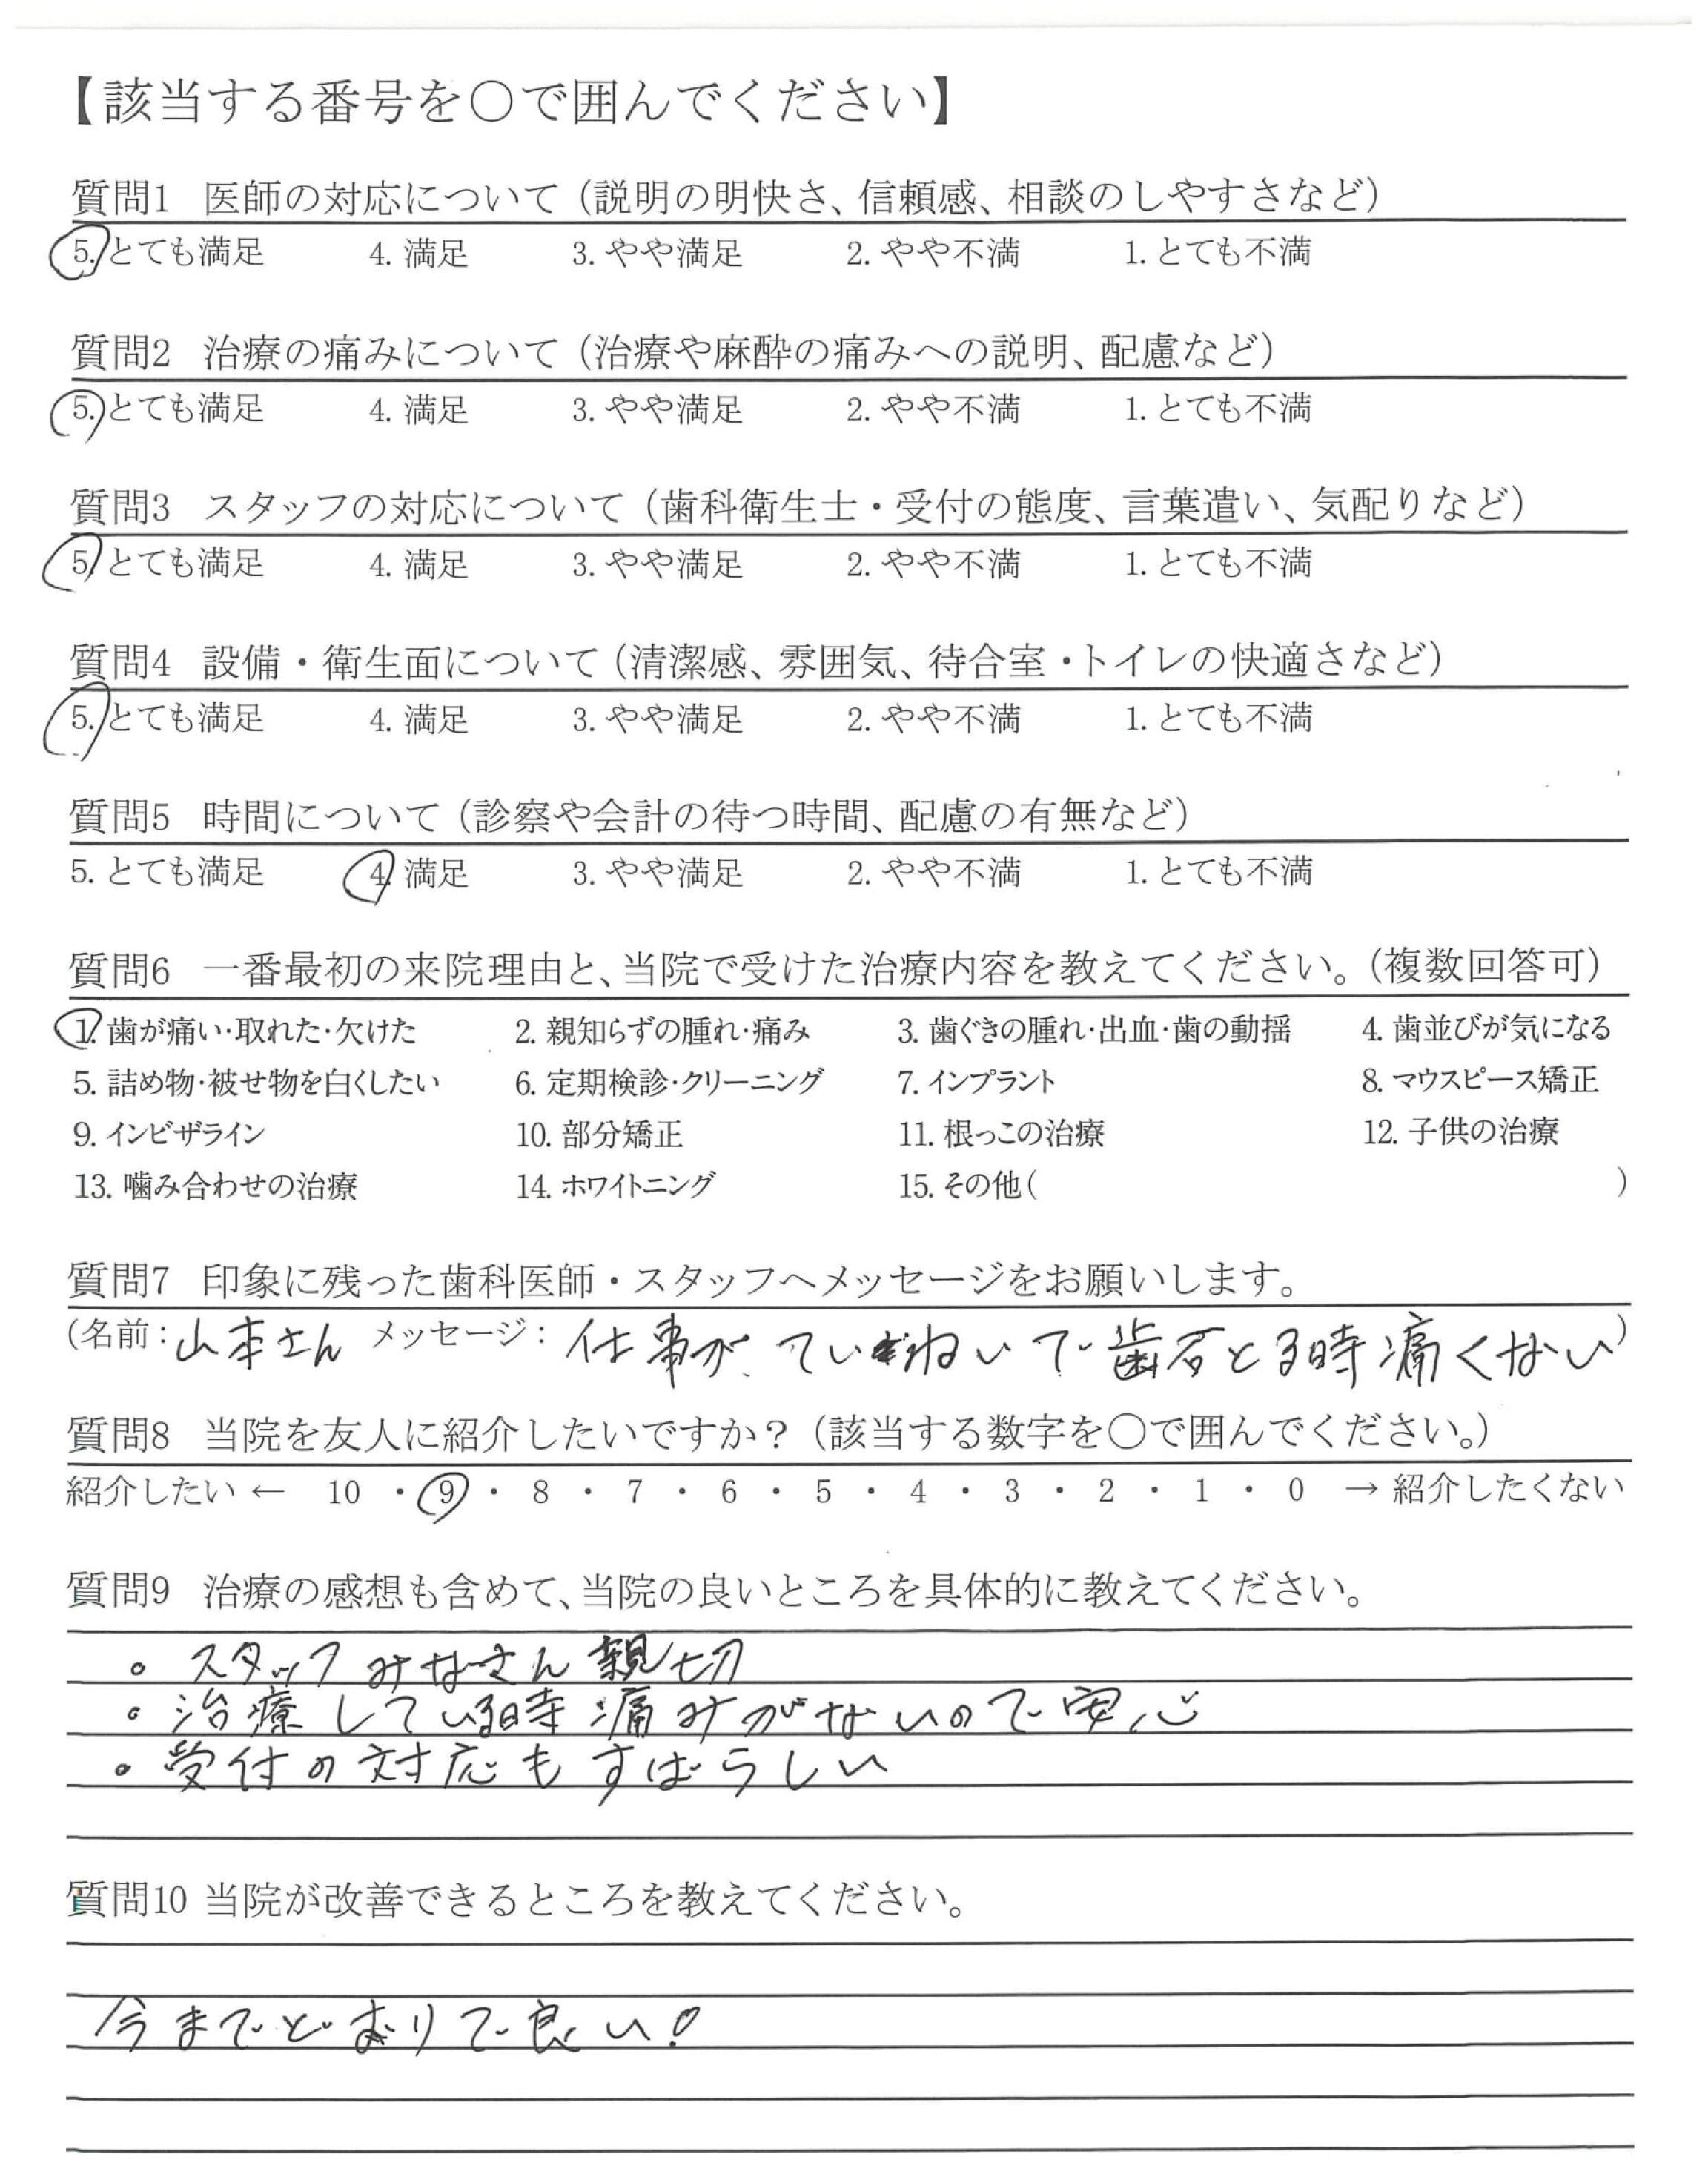 【該当する番号を○で囲んでください】
質問1 医師の対応について（説明の明快さ、信頼感、相談のしやすさなど）
5. とても満足 4. 満足 3. やや満足 2. やや不満 1. とても不満
質問2 治療の痛みについて（治療や麻酔の痛みへの説明、配慮など）
5. とても満足 4. 満足 3. やや満足 2. やや不満 1. とても不満
質問3 スタッフの対応について（歯科衛生士・受付の態度、言葉遣い、気配りなど）
5. とても満足 4. 満足 3. やや満足 2. やや不満 1. とても不満
質問4 設備・衛生面について（清潔感、雰囲気、待合室・トイレの快適さなど）
5. とても満足 4. 満足 3. やや満足 2. やや不満 1. とても不満
質問5 時間について（診察や会計の待つ時間、配慮の有無など）
5. とても満足 4. 満足 3. やや満足 2. やや不満 1. とても不満
質問6 一番最初の来院理由と、当院で受けた治療内容を教えてください。（複数回答可）
1. 歯が痛い・取れた・欠けた 2. 親知らずの腫れ・痛み 3. 歯ぐきの腫れ・出血・歯の動揺 4. 歯並びが気になる
5. 詰め物・被せ物を白くしたい 6. 定期検診・クリーニング 7. インプラント 8. マウスピース矯正
9. インビザライン 10. 部分矯正 11. 根っこの治療 12. 子供の治療
13. 噛み合わせの治療 14. ホワイトニング 15. その他（ ）
質問7 印象に残った歯科医師・スタッフへメッセージをお願いします。
（名前：山本さん メッセージ：仕事が、ていねいで歯石とる時痛くない）
質問8 当院を友人に紹介したいですか？（該当する数字を○で囲んでください。）
紹介したい ← 10 ・ 9 ・ 8 ・ 7 ・ 6 ・ 5 ・ 4 ・ 3 ・ 2 ・ 1 ・ 0 → 紹介したくない
質問9 治療の感想も含めて、当院の良いところを具体的に教えてください。
。スタッフみなさん親切
。治療している時痛みがないので安心
。受付の対応もすばらしい
質問10 当院が改善できるところを教えてください。
今までどおりで良い！